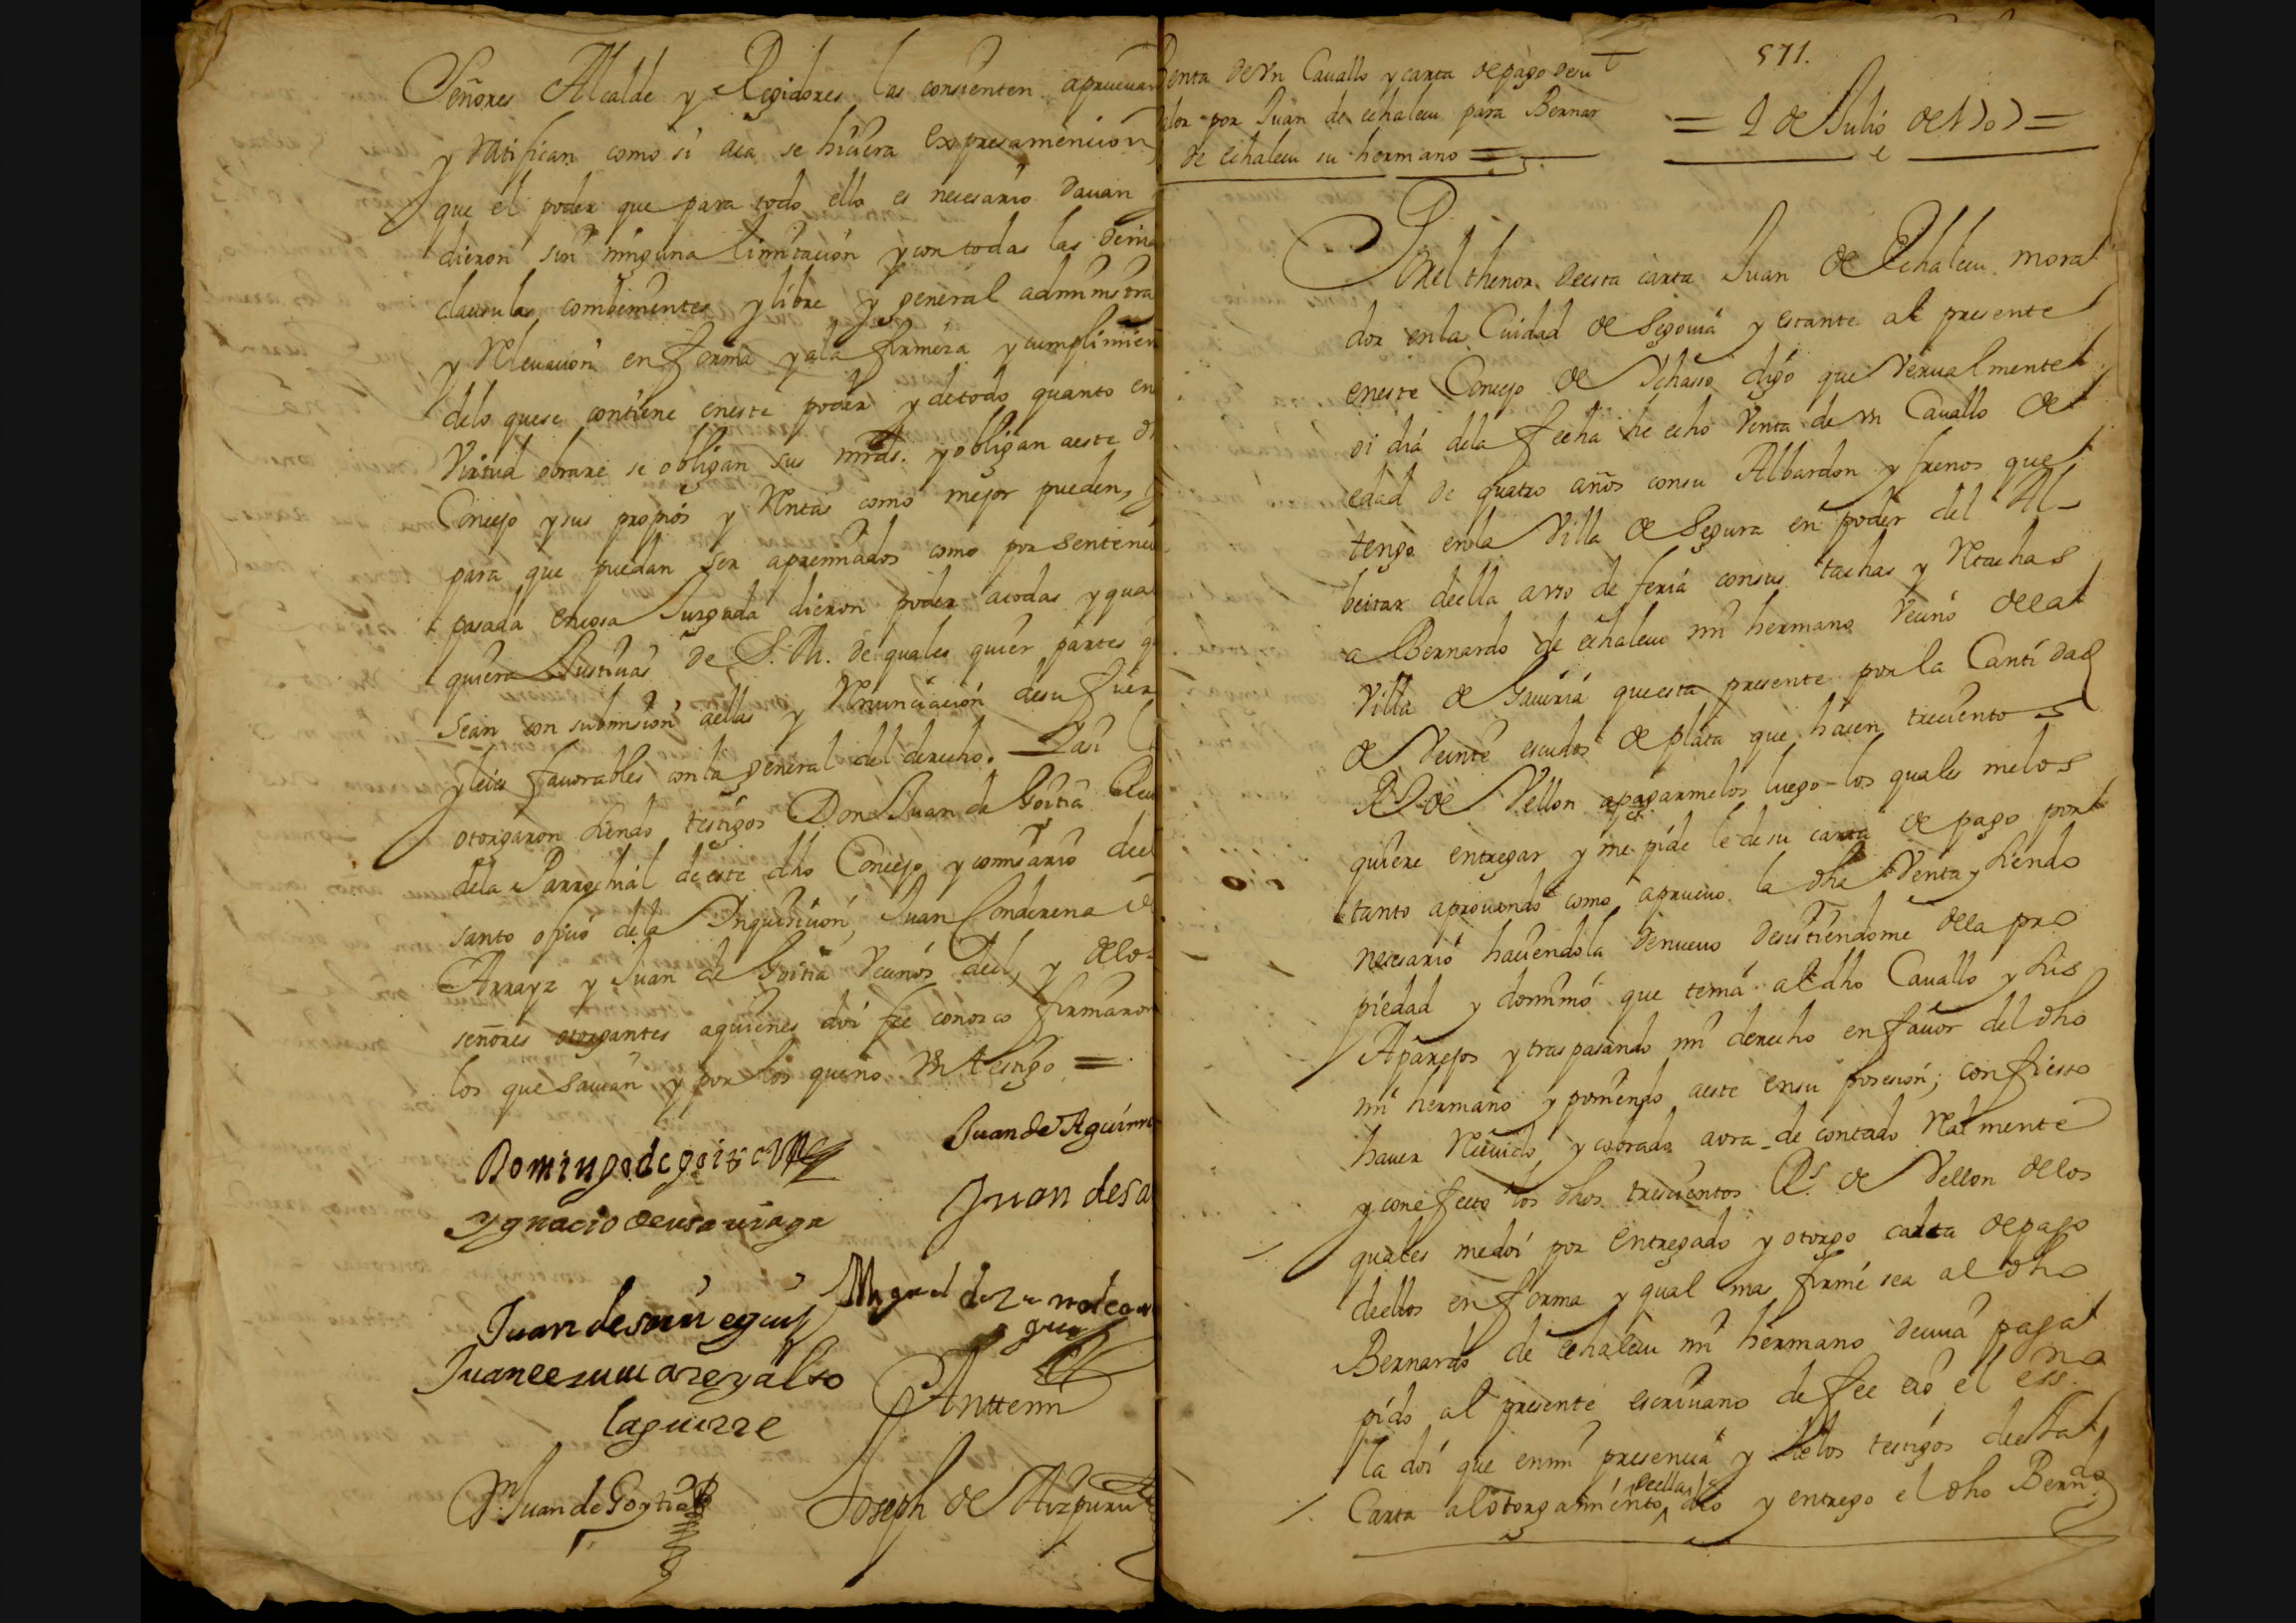 Señores Alcalde y Regidores las consienten aprueuan
y Ratifican como si aca se hiciera expresamencion
que el poder que para todo ello es necesario dauan y
dieron sin ninguna limitacion y con todas las demas
clausulas combenientes y libre y general administra
y Releuacion en forma y ala firmeza y cumplimien
delo quese contiene eneste poder y detodo quanto en
Virtud obrare se obligan sus mrds. y obligan aeste
Concejo y sus propios y Rentas como mejor pueden, y
para que puedan ser apremiados como por sentencia
pasada encosa Juzgada dieron poder atodas y qua
quiera Justicias de S. M. de quales quier partes q
sean con submision aellas y Renunciacion desu fuer
y leies fauorables con la general del derecho. Y asi
otorgaron siendo testigos Don Juan de Goitia
dela Parrochial de este dho Concejo y comisario del
santo oficio dela Inquisicion, Juan
Arrayz y Juan de Goitia vecinos del, y delos
señores otorgantes aquienes doi fee conosco firmaron
los que sauian y por los queno Vn testigo =
Juan de Aguirre
Domingo de goitia
Juan de sa
Ygnacio de usauiaga
Miguel de
Juan de
Juan de
laguirre
Antemi
Dn. Juan de Goytia
Joseph de Aizpuru
Venta de Vn Cauallo y carta de pago desu
valor por Juan de echaleu para Bernar
de echaleu su hermano =
571.
= 2 de Julio de 1707 =
Por el thenor de esta carta Juan de Echaleu mora
dor en la Ciudad de Segouia y estante al presente
eneste Concejo de Ychasso digo que Verualmente
oi dia dela fecha he echo Venta de vn Cauallo de
edad de quatro años consu Albardon y frenos que
tengo en la Villa de Segura en poder del Al
beitar de ella a vso de feria consus tachas y Retachas
a Bernardo de echaleu mi hermano Vecino de la
Villa de Gauiria que esta presente por la Cantidad
de Veinte escudos de plata que hacen trecientos
Rs. de Vellon apagarmelos luego los quales melos
quiere entregar y me pide le de su carta de pago por
tanto aprouando como aprueuo la dha Venta y siendo
necesario haciendola denueuo desistiendome dela pro
piedad y dominio que tenia al dho Cauallo y sus
Aparejos y traspasando mi derecho en fauor del dho
mi hermano y poniendo aeste ensu posesion; confiesso
hauer Reciuido y cobrado aora de contado Realmente
y con efecto los dhos trescientos Rs. de Vellon delos
quales medoi por entregado y otorgo carta de pago
de ellos en forma y qual mas firme sea al dho
Bernardo de echaleu mi hermano de cuia paga
pido al presente escriuano de fee e io el essno
la doi que enmi presencia y delos testigos de esta
deella
Carta al otorgamiento dio y entrego el dho Berndo